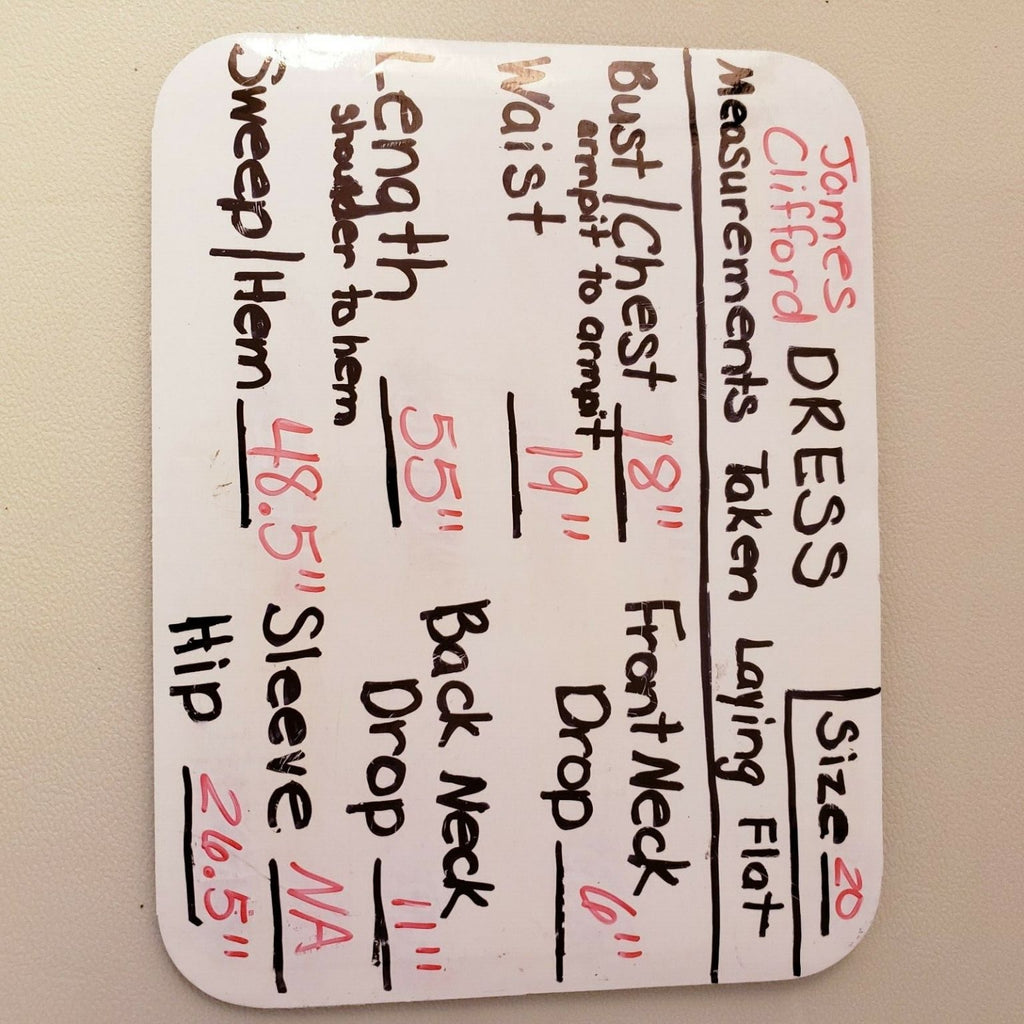 James
Clifford
DRESS
Size 20
Measurements Taken Laying Flat
Bust/Chest 18"
armpit to armpit
Waist 19"
Length 55"
shoulder to hem
Sweep/Hem 48.5"
Front Neck
Drop 6"
Back Neck
Drop 11"
Sleeve NA
Hip 26.5"